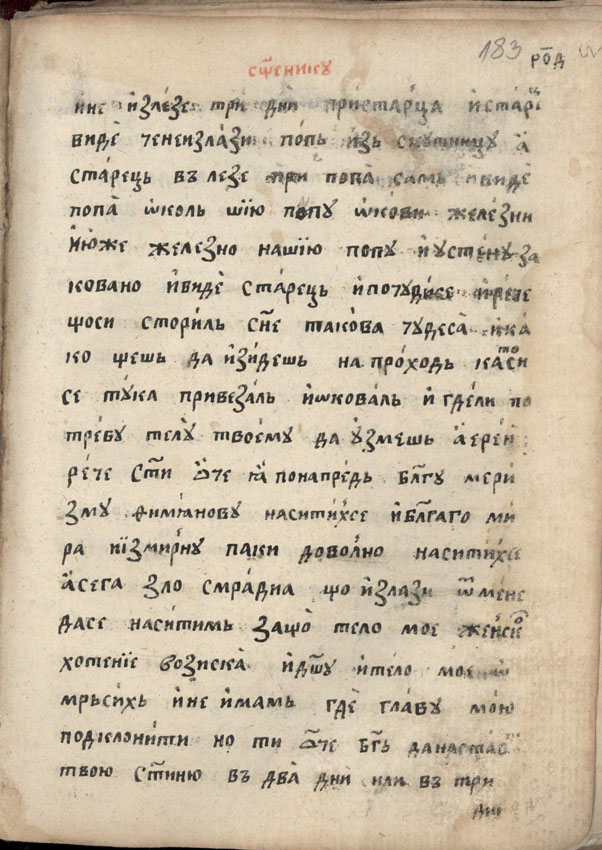 183 рѡд
сщ҃енику
ине излѣзе три дни пристарца истарцъ
видѣ че неизлази попь изь скутницу а
старець въ лезе при попа самь ивиде
попа̀ ѡколь шїю попу ѡкови железни
июже железно нашїю попу иустену за
ковано ивидѐ старець ипочудисе ирече
щоси сториль сн҃е такова чудеса̀ ика
ко щешь да изидешь на проходь катоси
се тука привезаль иѡковаль и гдели по
требу телу твоему да узмешь а ереи
рече ст҃и ѿче ꙗ понапредь бл҃гу мери
зму ѳимїанову наситихсе ибл҃гаго ми
ра иїзмирну паки доволно наситихсе
асега зло смрадна що излази ѿ мене
дасе наситимь защо̀ тело мое женско
хотенїе возиска̀ идш҃у итело мое ѡ
мрьсихь ине имамь гдѐ главу мою
подклонити но ти ѿче бг҃ь данастави
твою ст҃иню въ два̀ дни или въ три
дни